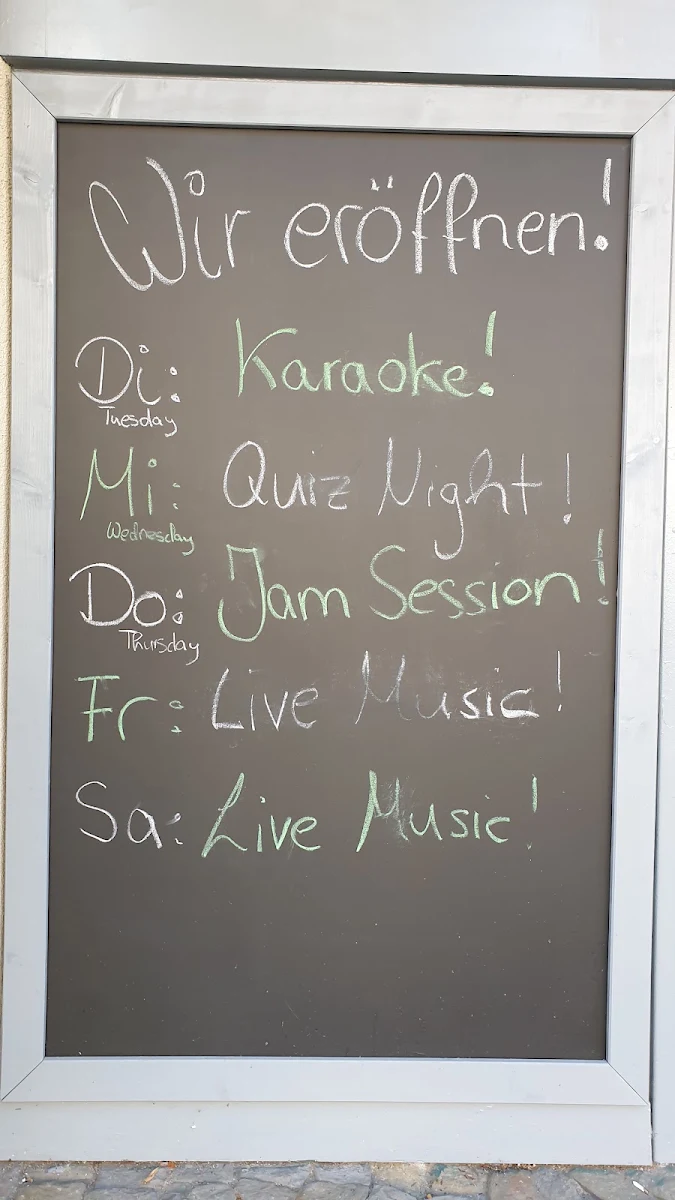 Wir eröffnen!
Di: Karaoke!
Tuesday
Mi: Quiz Night!
Wednesday
Do: Jam Session!
Thursday
Fr: Live Music!
Sa: Live Music!